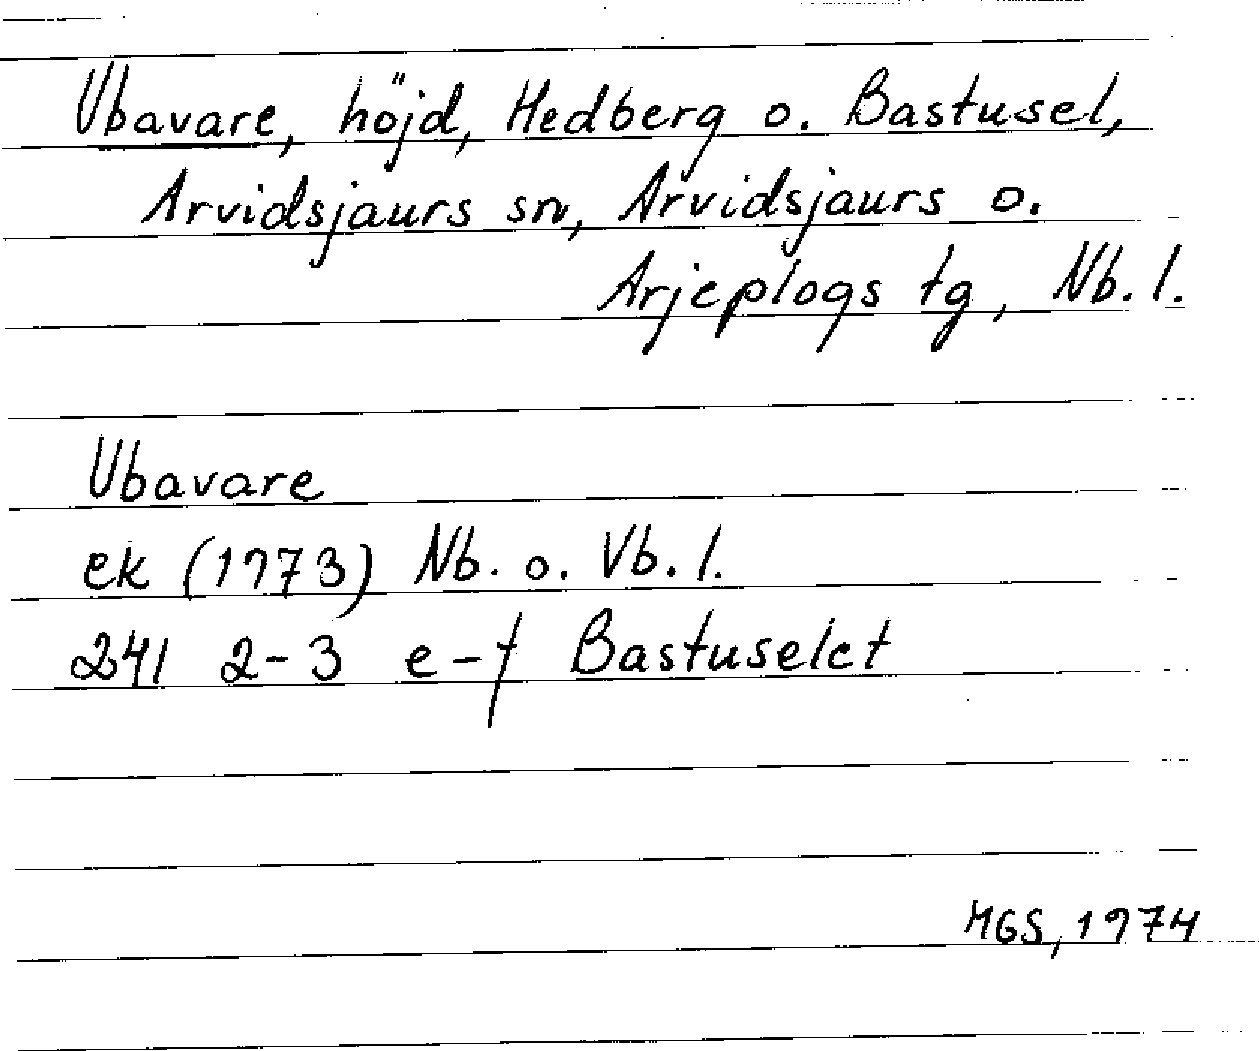 Ubavare, höjd, Hedberg o. Bastusel,
Arvidsjaurs sn, Arvidsjaurs o.
Arjeplogs tg, Nb. l.
Ubavare
ek (1973) Nb. o. Vb. l.
24I 2-3 e-f Bastuselet
MGS, 1974